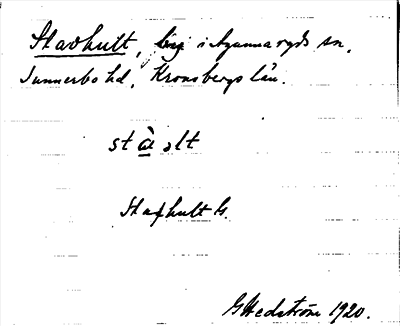 Stavhult, by i Agunnaryds sn,
Sunnerbo hd, Kronobergs län.
stà₂lt
Stafhult G.
G Hedström 1920.